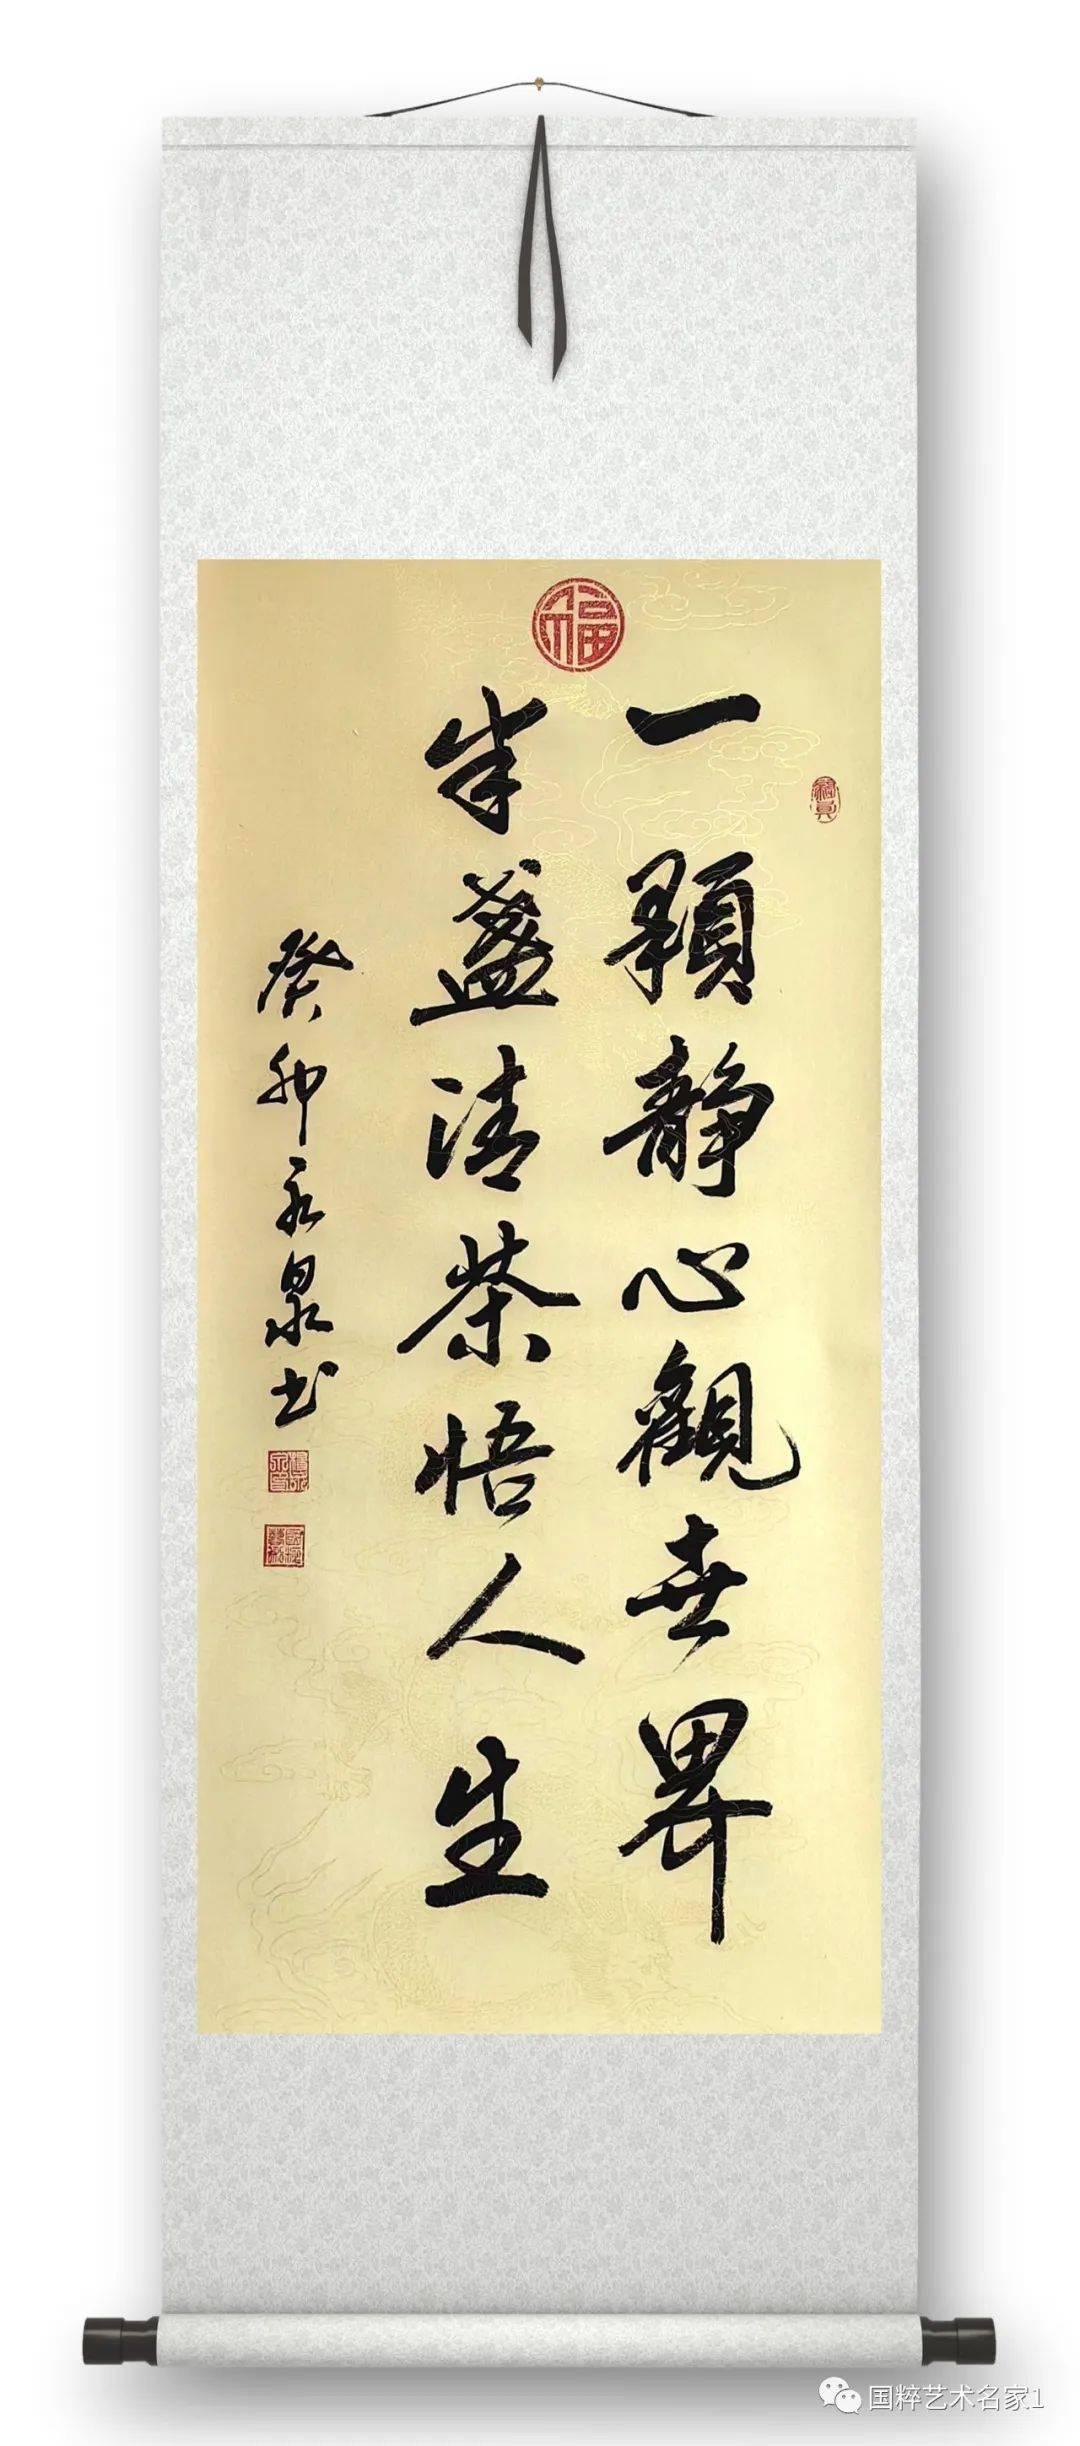 福
一顆靜心觀世界
半盞清茶悟人生
癸卯永泉书
国粹艺术名家1